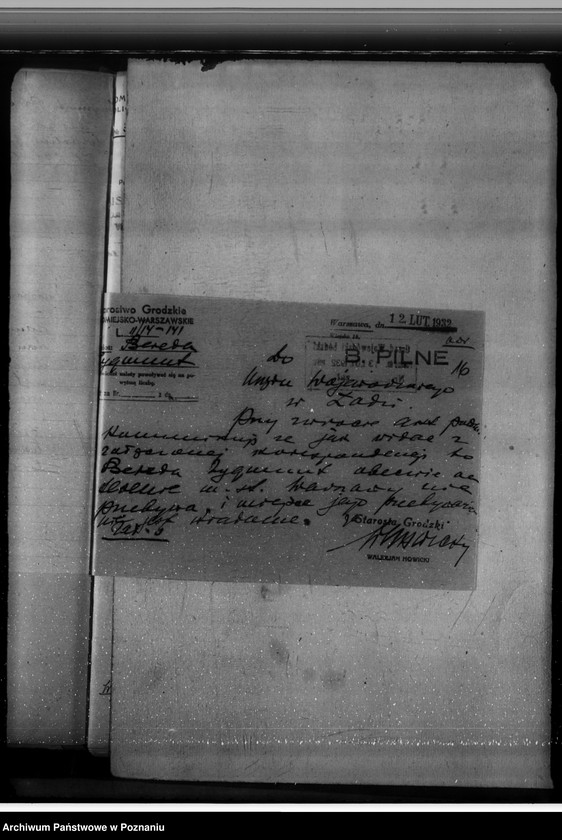 Starostwo Grodzkie
ŚRÓDMIEJSKO-WARSZAWSKIE
II/14-141
Bereda
Zygmunt
należy powoływać się na po-
wyższą liczbę
Warszawa, dn. 12 LUT. 1932
B. PILNE
16
Do
Urzędu Wojewódzkiego
w Łodzi.
Przy zwrocie
komunikuję że jak widać z
załączonej korespondencji to
Bereda Zygmunt obecnie na
terenie m. st. Warszawy nie
przebywa, i miejsce jego
nie jest wiadome.
Zał. 3
Starosta Grodzki
WALERJAN NOWICKI
Archiwum Państwowe w Poznaniu